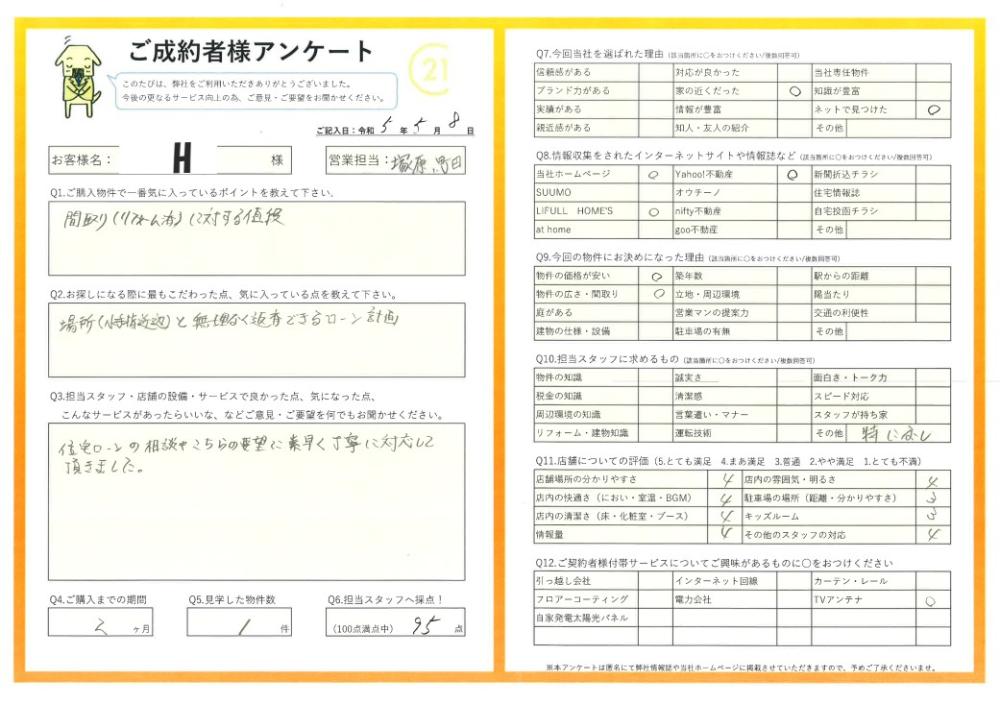 ご成約者様アンケート
21
このたびは、弊社をご利用いただきありがとうございました。
今後の更なるサービス向上の為、ご意見・ご要望をお聞かせください。
ご記入日：令和 5 年 5 月 8 日
お客様名： H 様
営業担当：塚原、町田
Q1.ご購入物件で一番気に入っているポイントを教えて下さい。
間取り(リフォーム済)に対する値段
Q2.お探しになる際に最もこだわった点、気に入っている点を教えて下さい。
場所( )と無理なく返済できるローン計画
Q3.担当スタッフ・店舗の設備・サービスで良かった点、気になった点、
こんなサービスがあったらいいな、などご意見・ご要望を何でもお聞かせください。
住宅ローンの相談やこちらの要望に素早く丁寧に対応して
頂きました。
Q4.ご購入までの期間
2 ヶ月
Q5.見学した物件数
1 件
Q6.担当スタッフへ採点！
(100点満点中) 95 点
Q7.今回当社を選ばれた理由 (該当箇所に〇をおつけください/複数回答可)
信頼感がある 対応が良かった 当社専任物件
ブランド力がある 家の近くだった 〇 知識が豊富
実績がある 情報が豊富 ネットで見つけた 〇
親近感がある 知人・友人の紹介 その他
Q8.情報収集をされたインターネットサイトや情報誌など (該当箇所に〇をおつけください/複数回答可)
当社ホームページ 〇 Yahoo!不動産 〇 新聞折込チラシ
SUUMO オウチーノ 住宅情報誌
LIFULL HOME'S 〇 nifty不動産 自宅投函チラシ
at home goo不動産 その他
Q9.今回の物件にお決めになった理由 (該当箇所に〇をおつけください/複数回答可)
物件の価格が安い 〇 築年数 駅からの距離
物件の広さ・間取り 〇 立地・周辺環境 陽当たり
庭がある 営業マンの提案力 交通の利便性
建物の仕様・設備 駐車場の有無 その他
Q10.担当スタッフに求めるもの (該当箇所に〇をおつけください/複数回答可)
物件の知識 誠実さ 面白さ・トーク力
税金の知識 清潔感 スピード対応
周辺環境の知識 言葉遣い・マナー スタッフが持ち家
リフォーム・建物知識 運転技術 その他 特になし
Q11.店舗についての評価 (5.とても満足 4.まあ満足 3.普通 2.やや満足 1.とても不満)
店舗場所の分かりやすさ 4 店内の雰囲気・明るさ 4
店内の快適さ（におい・室温・BGM） 4 駐車場の場所（距離・分かりやすさ） 3
店内の清潔さ（床・化粧室・ブース） 4 キッズルーム 3
情報量 4 その他のスタッフの対応 4
Q12.ご契約者様付帯サービスについてご興味があるものに〇をおつけください
引っ越し会社 インターネット回線 カーテン・レール
フロアーコーティング 電力会社 TVアンテナ 〇
自家発電太陽光パネル
※本アンケートは匿名にて弊社情報誌や当社ホームページに掲載させていただきますので、予めご了承くださいませ。